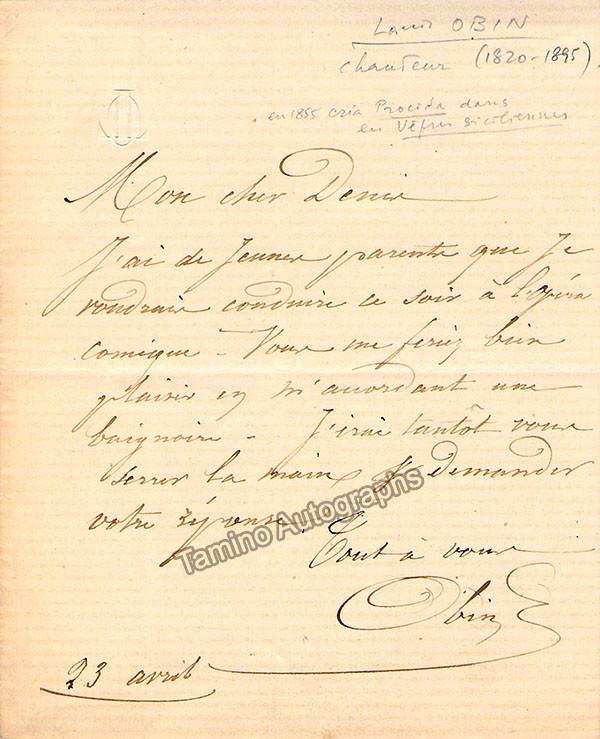 Louis OBIN
chanteur (1820-1895).
en 1855 créa Procida dans
en Vêpres siciliennes
Mon cher Denis
J'ai de jeunes parents que je
voudrais conduire ce soir à l'opéra
comique - Vous me feriez bien
plaisir en m'accordant une
baignoire - J'irai tantôt vous
serrer la main & demander
votre réponse.
Tout à vous
Obin
23 avril
Tamino Autographs